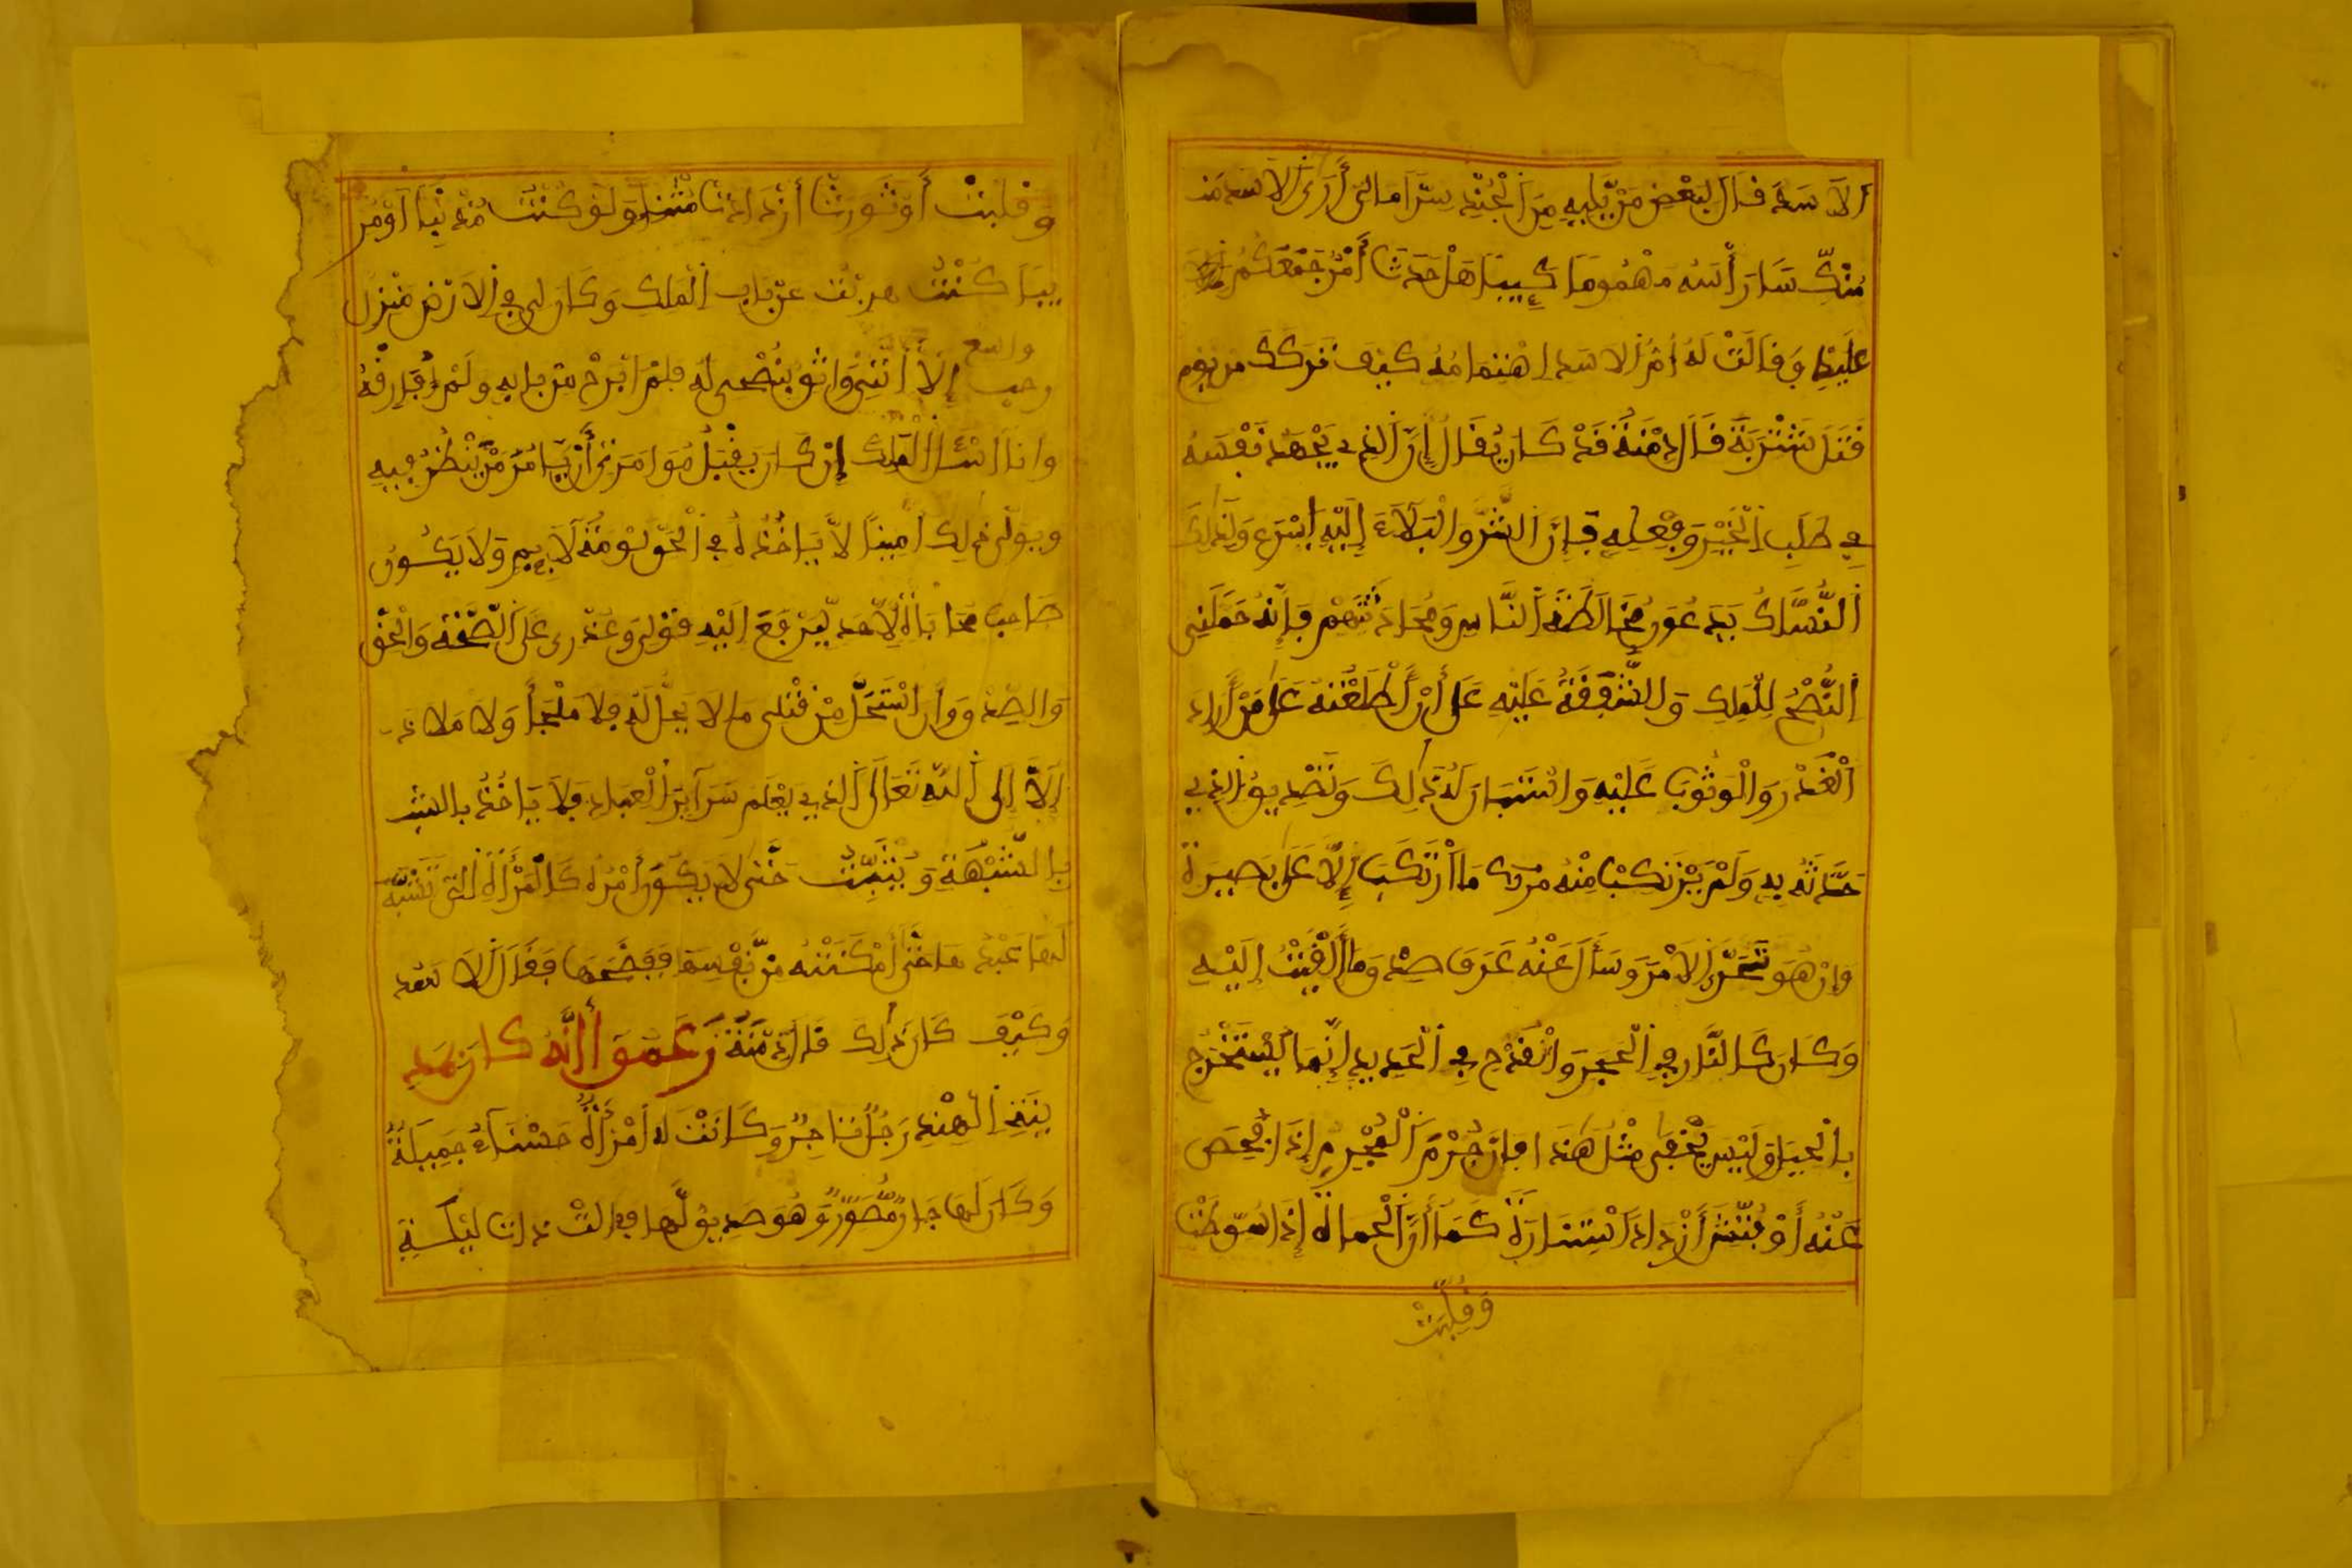 الاسد قال لبعض من يليه من الجند سرا ما لي أرى الاسد منذ
منكسا رأسه مهموما كييبا هل حدث أمر جمعكم
عليه وقالت له أم الاسد اهتمامه كيف تركك من يوم
قتل شتربة قال دمنة قد كان يقال إن الذي يجهد نفسه
في طلب الخير وفعله فإن الشر والبلاء إليه اسرع ولذلك
النساك يدعون مخالطة الناس ومحادثتهم فإنه حملني
النصح للملك والشفقة عليه على أن أطلعته على من أراد
الغدر والوثوب عليه واستبان له ذلك وتصديق الذي
حدثته به ولم يرتكب منه مرتكب ما ارتكب إلا على بصيرة
وإن هو تحرى الامر وسأل عنه عرف صدق ما ألقيت إليه
وكان كالنار في الحجر وانقدح في الحديد إنما يستخرج
بالحيل وليس يخفى مثل هذا فإن جرم المجرم إذا فحص
عنه أو فتش أزداد استنارة كما أن الحماة إذا سوطت
وقلبت
وقلبت أو ثورت أزدادت نتنا ولو كنت مذنبا او مر
يبا كنت هربت عن باب الملك وكان لي في الارض منزل
واسع
رحب إلا انني واثق بنصحي له فلم ابرح من بابه ولم أفارقه
وانا اسئل الملك إن كان يقبل مؤامرتي أن يامر من ينظر فيه
ويولي ذلك أمينا لا ياخذه في الحق لومة لايم ولا يكون
صاحب محاباة لأحد ليرفع اليه قولي وعذري على الصحة والحق
والصدق وان استحل من قتلي ما لا يحل له فلا ملجأ ولا ملاذ
إلا إلى الله تعالى الذي يعلم سراير العباد فلا ياخذ بالشبـ
بالشبهة ويتثبت حتى لا يكون أمره كالمرأة التي تشبه
لها عبدها حتى أمكنته من نفسها ففضحها فقال الاسد
وكيف كان ذلك قال دمنة زعموا أنه كان بمد
ينة الهند رجل تاجر وكانت له امرأة حسناء جميلة
وكان لها جار مصور وهو صديق لها فقالت ذات ليلة